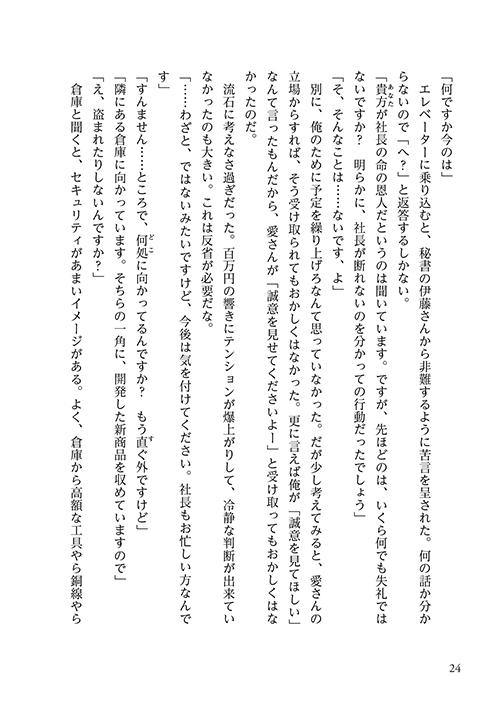 「何ですか今のは」
エレベーターに乗り込むと、秘書の伊藤さんから非難するように苦言を呈された。何の話か分か
らないので「へ？」と返答するしかない。
「貴方が社長の命の恩人だというのは聞いています。ですが、先ほどのは、いくら何でも失礼では
ないですか？　明らかに、社長が断れないのを分かっての行動だったでしょう」
「そ、そんなことは……ないです、よ」
別に、俺のために予定を繰り上げろなんて思っていなかった。だが少し考えてみると、愛さんの
立場からすれば、そう受け取られてもおかしくはなかった。更に言えば俺が「誠意を見てほしい」
なんて言ったもんだから、愛さんが「誠意を見せてくださいよー」と受け取ってもおかしくはな
かったのだ。
流石に考えなさ過ぎだった。百万円の響きにテンションが爆上がりして、冷静な判断が出来てい
なかったのも大きい。これは反省が必要だな。
「……わざと、ではないみたいですけど、今後は気を付けてください。社長もお忙しい方なんで
す」
「すんません……ところで、何処に向かってるんですか？　もう直ぐ外ですけど」
「隣にある倉庫に向かっています。そちらの一角に、開発した新商品を収めていますので」
「え、盗まれたりしないんですか？」
倉庫と聞くと、セキュリティがあまいイメージがある。よく、倉庫から高額な工具やら銅線やら
あなた
どこ
す
24